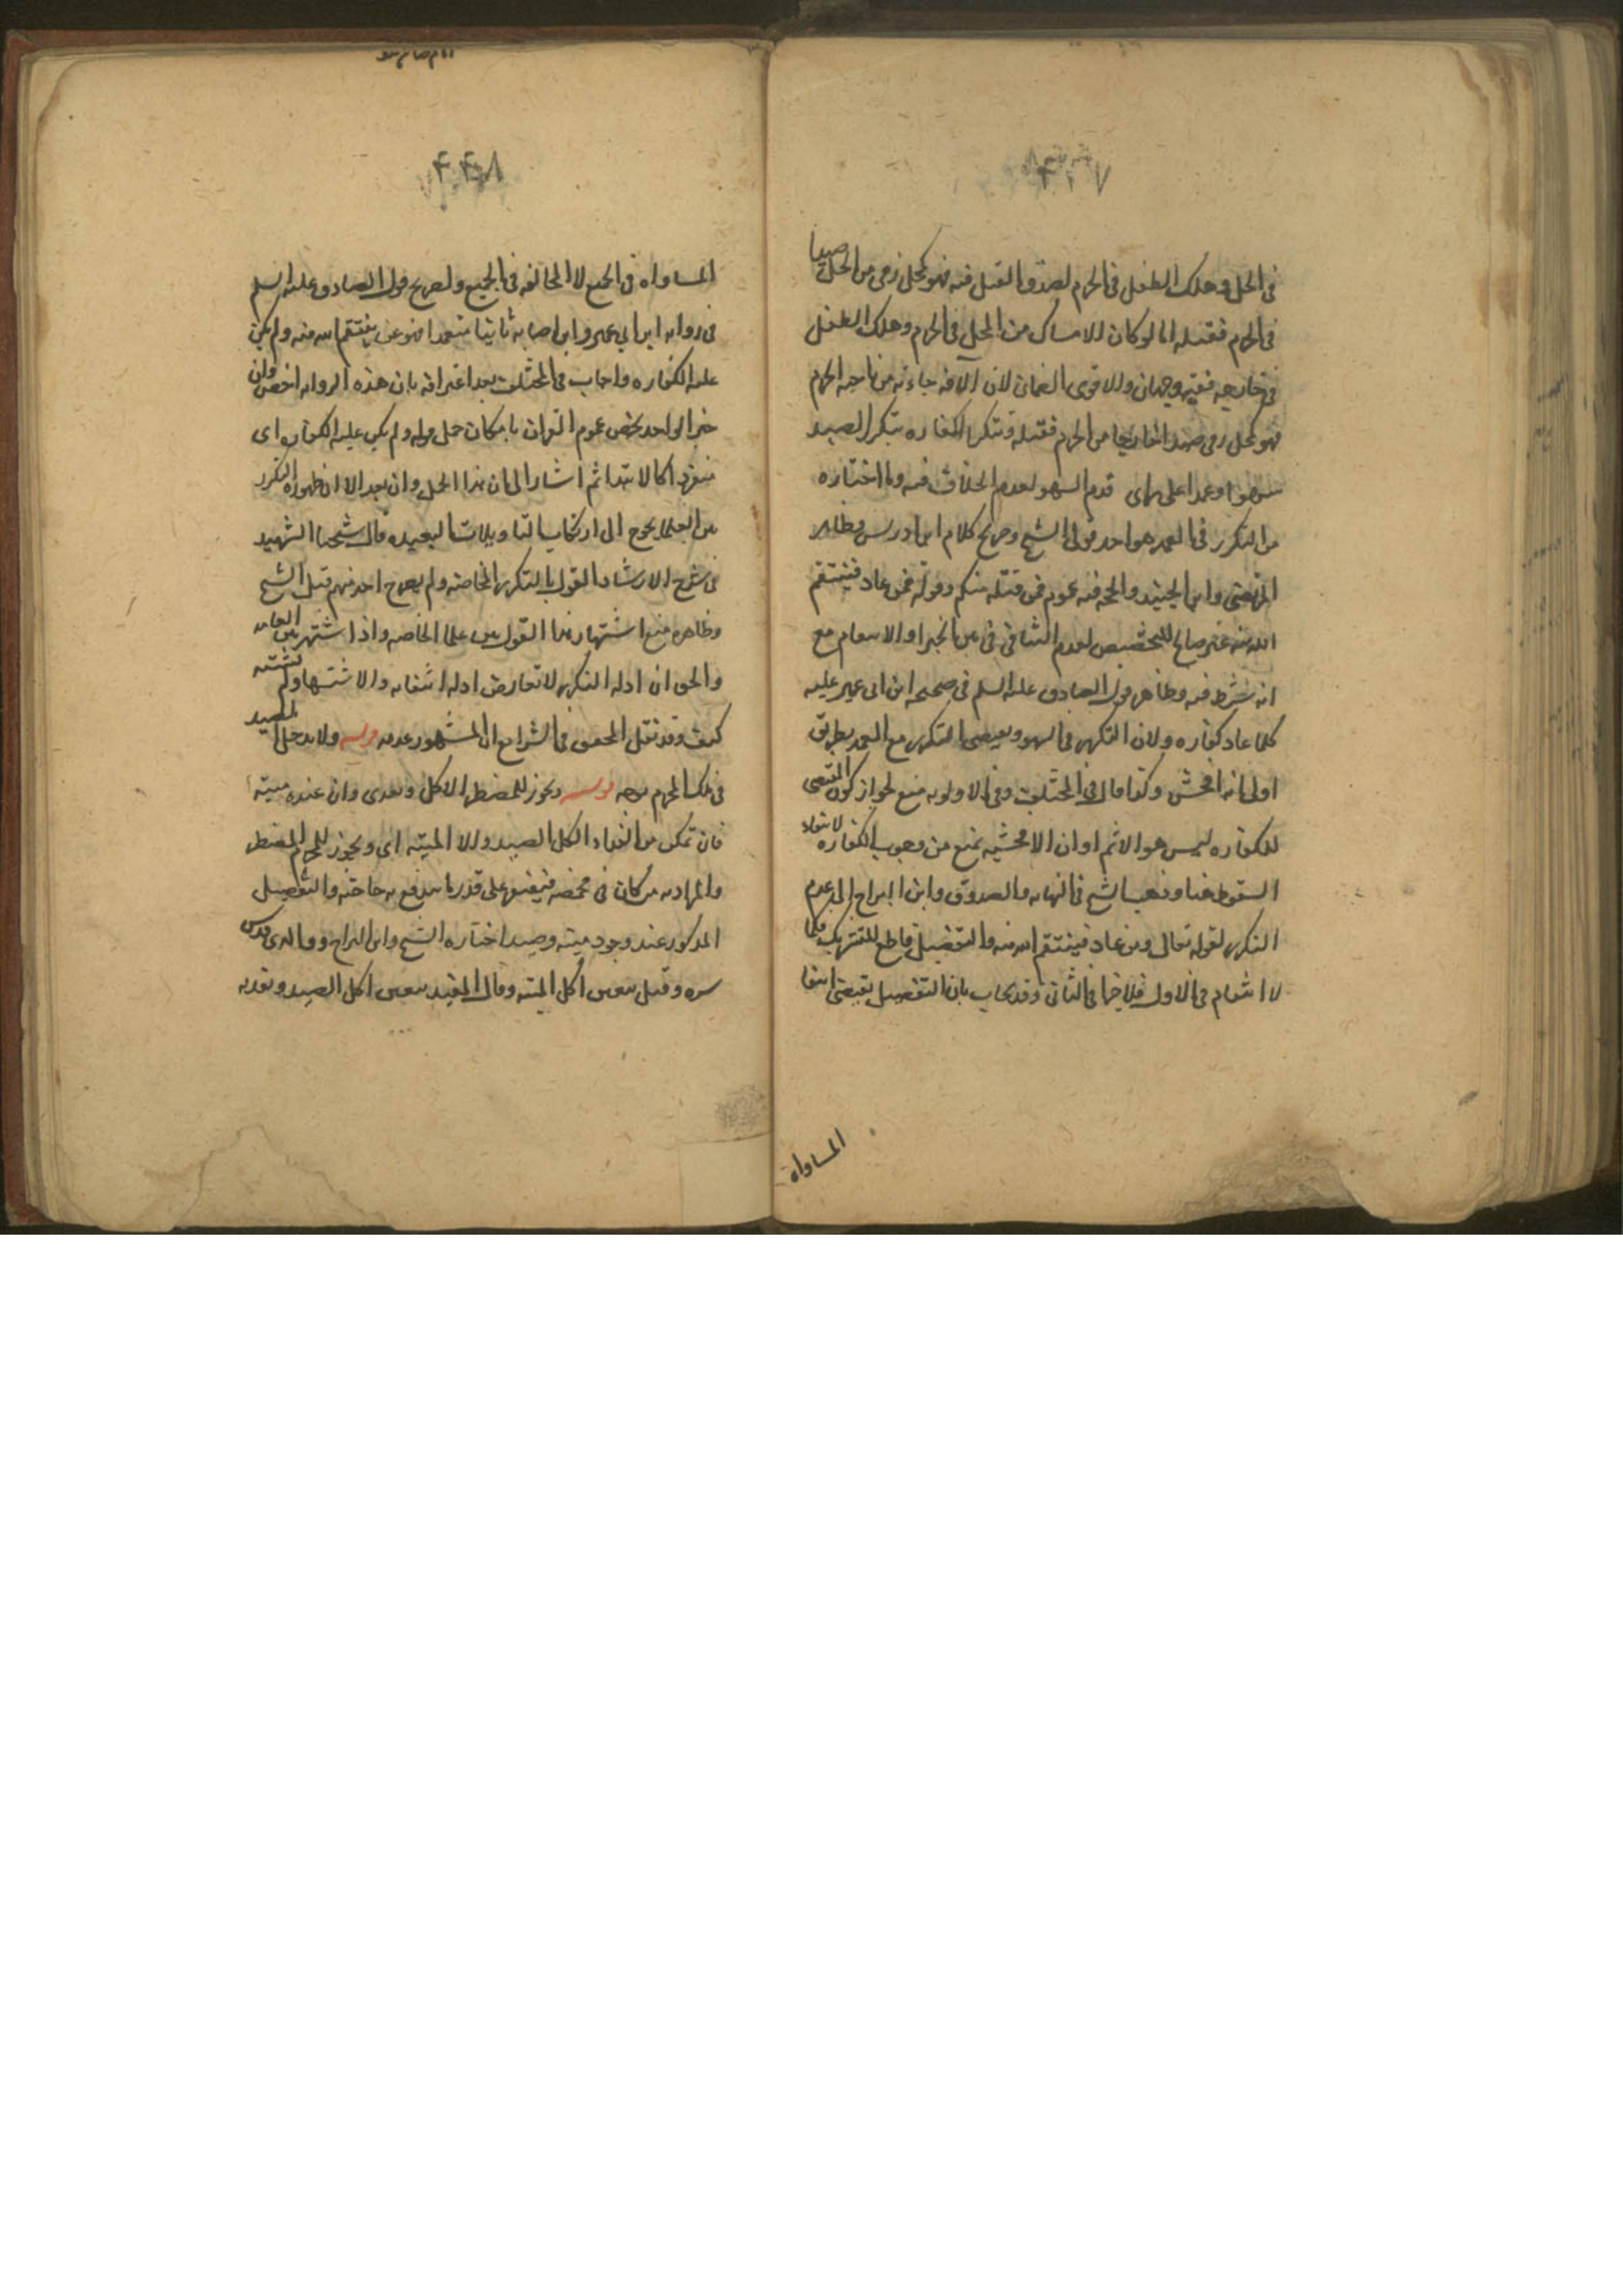 ٤٢٧
في الحل وهلك الطفل في الحرم لصدق القتل فيه فهو كمحل رمى من الحل صيدا
في الحرم فقتله اما لو كان الامساك من المحل في الحرم وهلك الطفل
في خارجه ففيه وجهان والاقوى الضمان لان الآفة جاءته من ناحية الحرم
فهو كمحل رمى صيدا خارجا من الحرم فقتله وتتكرر الكفاره بتكرر الصيد
سهوا وعمدا على راى قدم السهو لعدم الخلاف فيه وما اختاره
من التكرر في العمد هو احد قولي الشيخ وصريح كلام ابن ادريس وظاهر
المرتضى وابن الجنيد والحجه فيه عموم فمن قتله منكم وقوله فمن عاد فينتقم
الله منه غير صالح للتخصيص لعدم التنافي في بين الجبر او الانتقام مع
انه شرط فيه وظاهر قول الصادق عليه السلم في صحيحه ابن ابي عمير عليه
كلما عاد كفاره ولان التكرر في السهو ويقتضى التكرر مع العمد بطريق
اولى لانه افحش وكذا قال في المختلف وفي الاولويه منع لجواز كون المقتضى
للكفاره ليس هو الاثم او ان الافحشيه تمنع من وجوب الكفاره لانتفاء
السقوط هنا وذهب الشيخ في النهايه والصدوق وابن البراج الى عدم
التكرر لقوله تعالى ومن عاد فينتقم الله منه والتفصيل قاطع للتشريك فكما
لا انتقام في الاول فلا جزا في الثاني وقد يجاب بان التفصيل يقتضى انتفا
المساواه
٤٢٨
المساواه في الجميع لا المخالفه في الجميع ولصريح قول الصادق عليه السلم
في روايه ابن ابي عمير وان اصابه ثانيا متعمدا فهو ممن ينتقم الله منه ولم يكن
عليه الكفاره واجاب في المختلف بعد اعترافه بان هذه الروايه اخص وان
خبر الواحد يخص عموم القران بامكان حمل قوله ولم يكن عليه الكفاره اى
منفردا كالابتدا ثم اشار الى ان هذا الحمل وان بعد الا ان ظهور التكرر
بين العلما يحوج الى ارتكاب التاويلات البعيده قال شيخنا الشهيد
في شرح الارشاد القول بالتكرر الخاصه ولم يصرح احد منهم قبل الشيخ
وظاهره منع اشتهار هذا القول بين علما الخاصه واذا اشتهر بين العامه
والحق ان ادله التكرر لا تعارض ادله انتفائه والاشتهار لم يثبت
كيف وقد نقل المحقق في الشرايع ان المشهور عدمه قوله ولا يدخل الصيد
في ملك المحرم بوجه قوله ويجوز للمضطر الاكل ويفدى وان عنده ميته
فان تمكن من الفداء اكل الصيد والا الميته اى ويجوز للمحرم المضطر
والمراد به من كان في مخمصه فيقتصر على قدر ما يندفع به حاجته والتفصيل
المذكور عند وجود ميته وصيد اختاره الشيخ وابن البراج ووالدى قدس
سره وقيل يتعين اكل الميته وقال المفيد يتعين اكل الصيد ويفديه